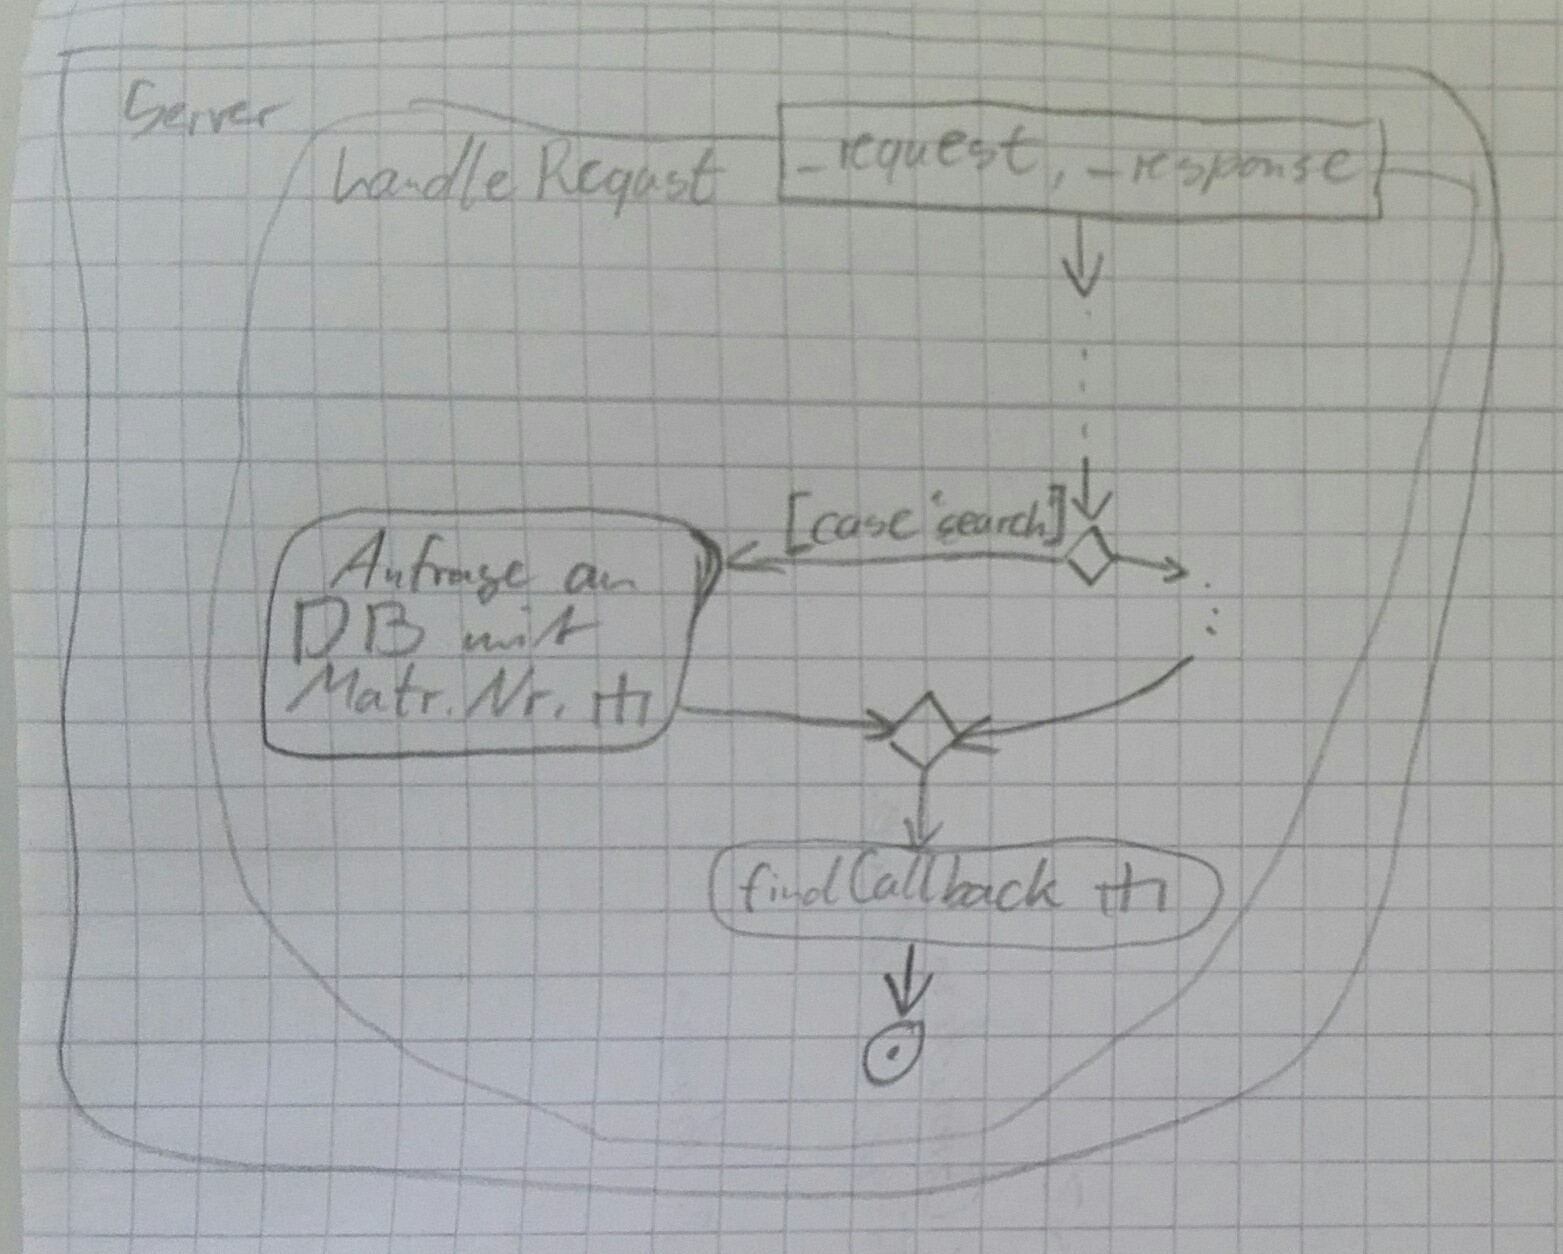 Server
handleReqast
_request, _response
[case 'search]
Anfrage an
DB mit
Matr. Nr.
findCallback